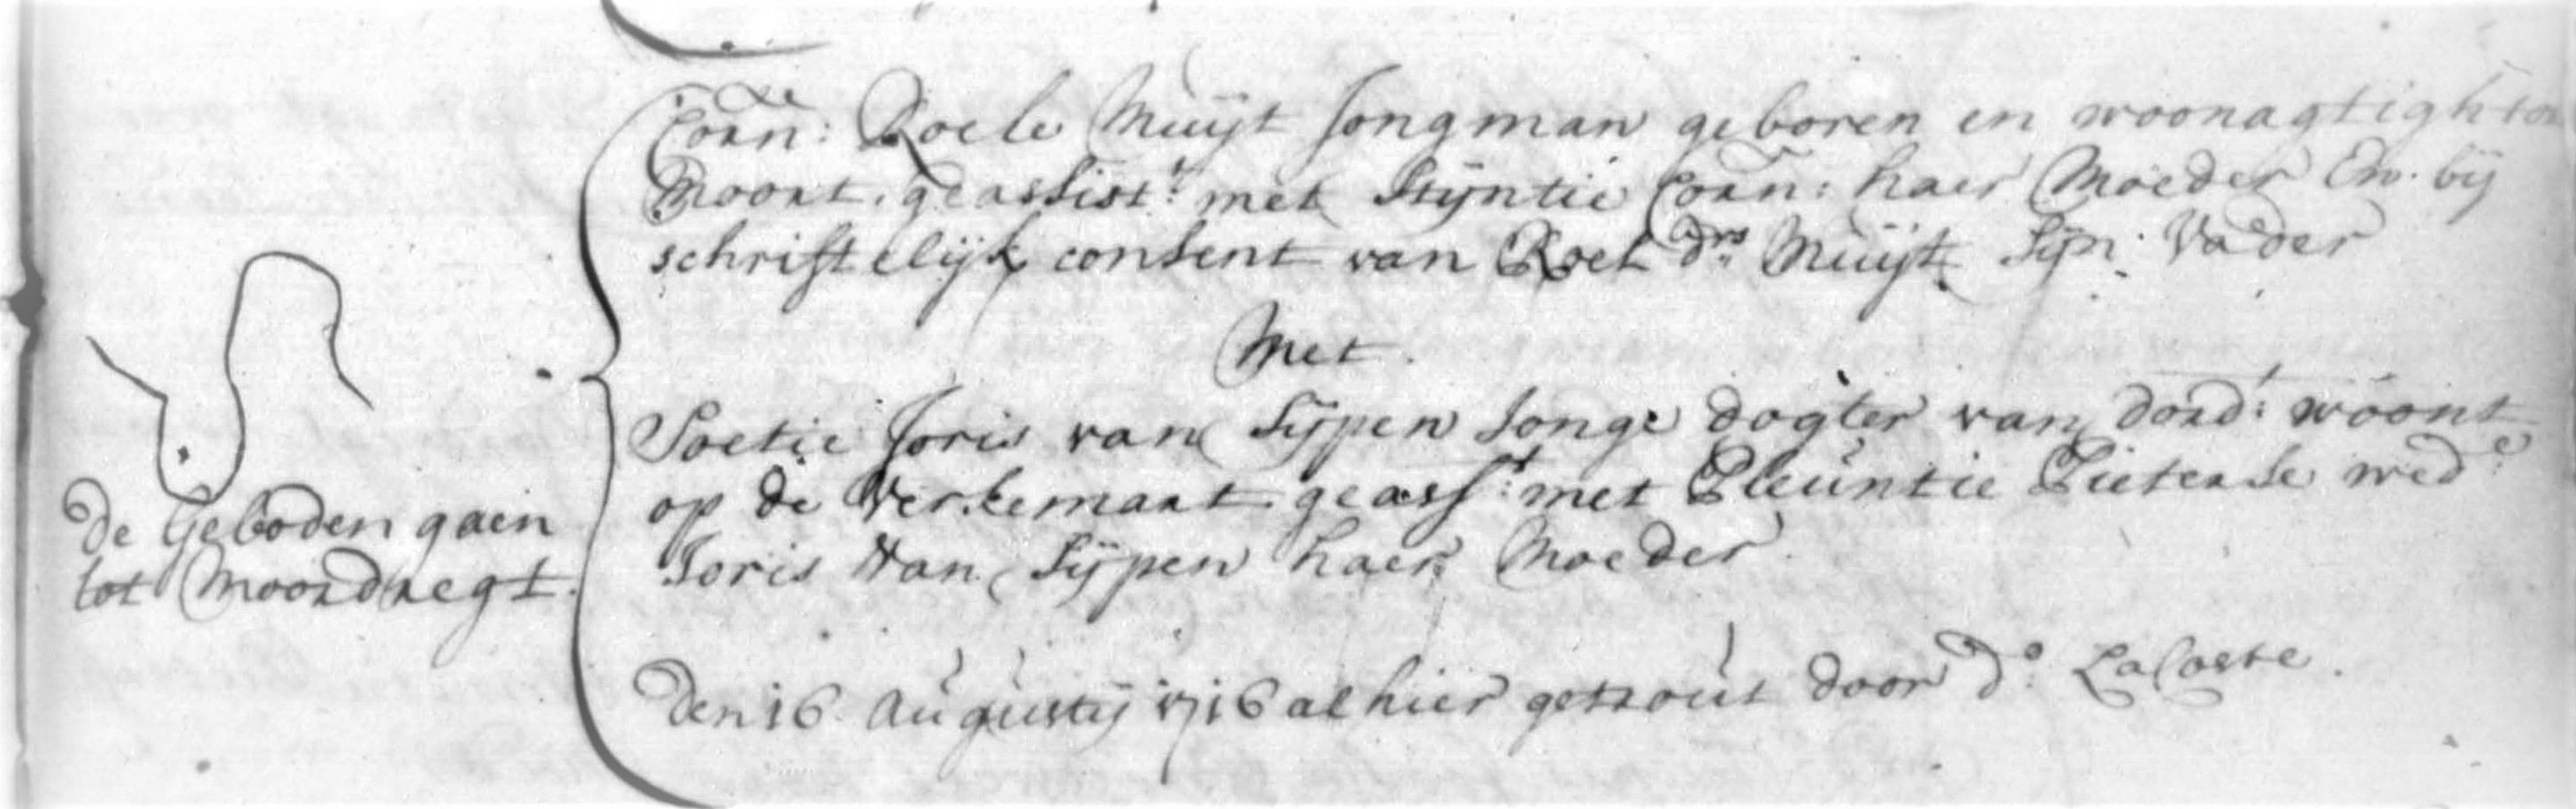 Corn: Roele Muijt Jongman geboren en woonagtigh tot
Moort. geassist:t met Stijntie Corn: haer Moeder En. bij
schriftelijk consent van Roel d:rs Muijt Sijn Vader
Met
Soetie Joris van Sijpen Jonge dogter van dord:t woont
op de Verkemart geass:t met Pleuntie Pieterse wed:e
Joris Van Sijpen haer Moeder
De Geboden gaen
tot Moordregt.
Den 16 Augustij 1716 alhier getrout door d:o LaCoste.